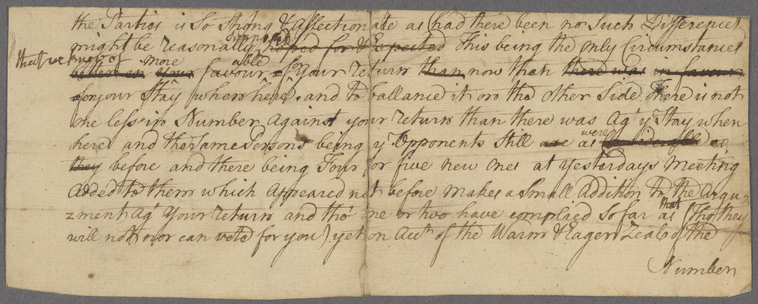 the Parties is So Strong & affectionate as (had there been no Such Difference)
might be reasonally supposed hoped for & Expected This being the only Circumstance
that we know of more favourable for your return than now than there was in favour
for your Stay when here. and to ballance it on the other Side There is not
one less in Number against your return than there was Agt yr Stay when
here and the same Persons being yr Opponents Still are as were
they before and there being Four or five new ones at yesterdays Meeting
Added to them which Appeared not before makes a Small Addition to the Argu-
-ment Agt Your return and tho' one or two have complaid So far as that (Tho they
will not nor can vote for you) yet on Acct of the Warm & Eager Zeal of the
Number